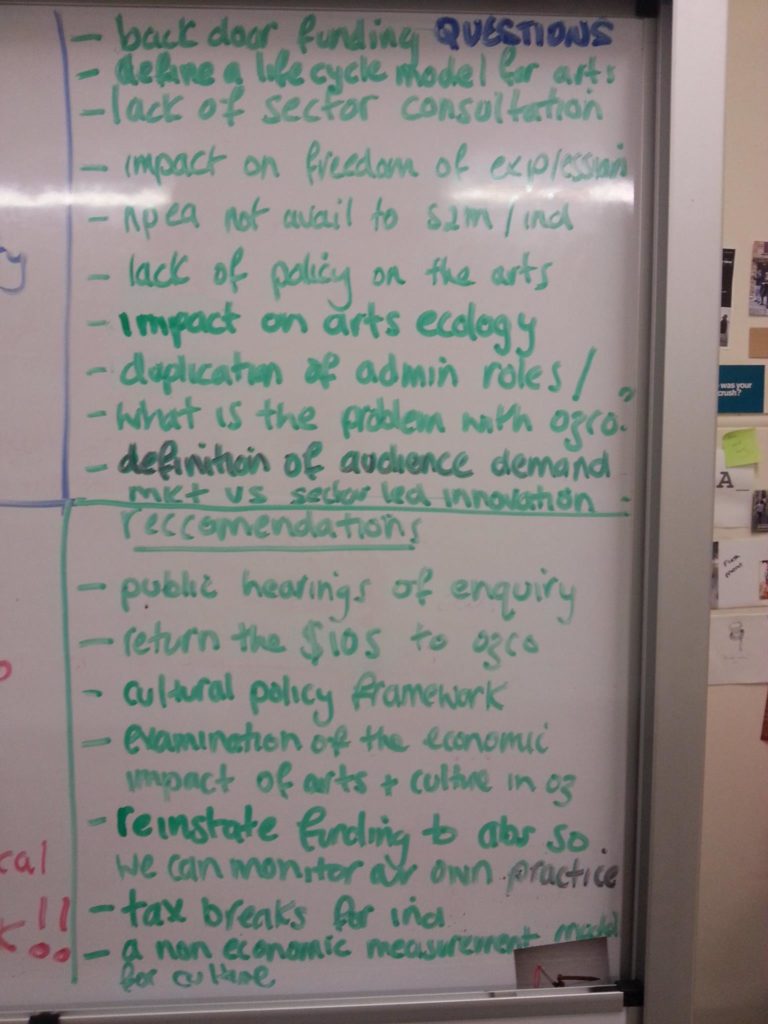 - back door funding QUESTIONS
- define a life cycle model for arts
- lack of sector consultation
- impact on freedom of expression
- npea not avail to s2m / ind
- lack of policy on the arts
- impact on arts ecology
- duplication of admin roles /
- what is the problem with ozco?
- definition of audience demand
mkt vs sector led innovation
reccomendations
- public hearings of enquiry
- return the $105 to ozco
- cultural policy framework
- examination of the economic
impact of arts + culture in oz
- reinstate funding to abs so
we can monitor our own practice
- tax breaks for ind
- a non economic measurement model
for culture
cal
!!
was your
crush?
A